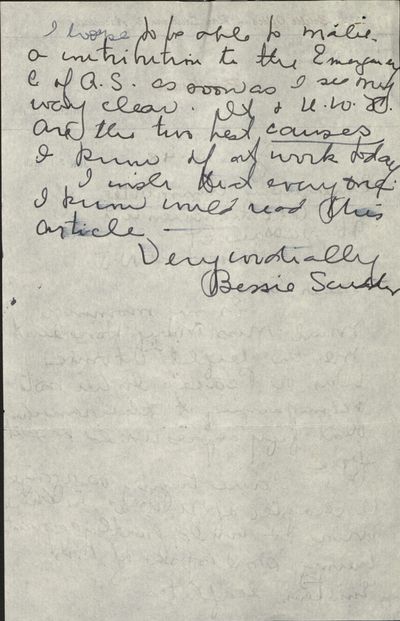 I hope to be able to make
a contribution to the Emergency
C of A.S. as soon as I see my
way clear. It & U.W.F.
are the two best causes
I know of at work today
I wish that everyone
I know would read this
article —
Very cordially
Bessie